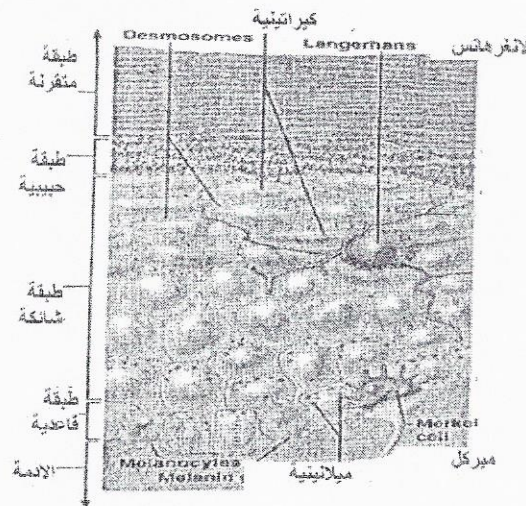 كيراتينية
Desmosomes
Langerhans
لانغرهانس
طبقة
متقرنة
طبقة
حبيبية
طبقة
شائكة
طبقة
قاعدية
الادمة
Merkel
cell
ميركل
Melanocytes
Melanin
ميلانينية